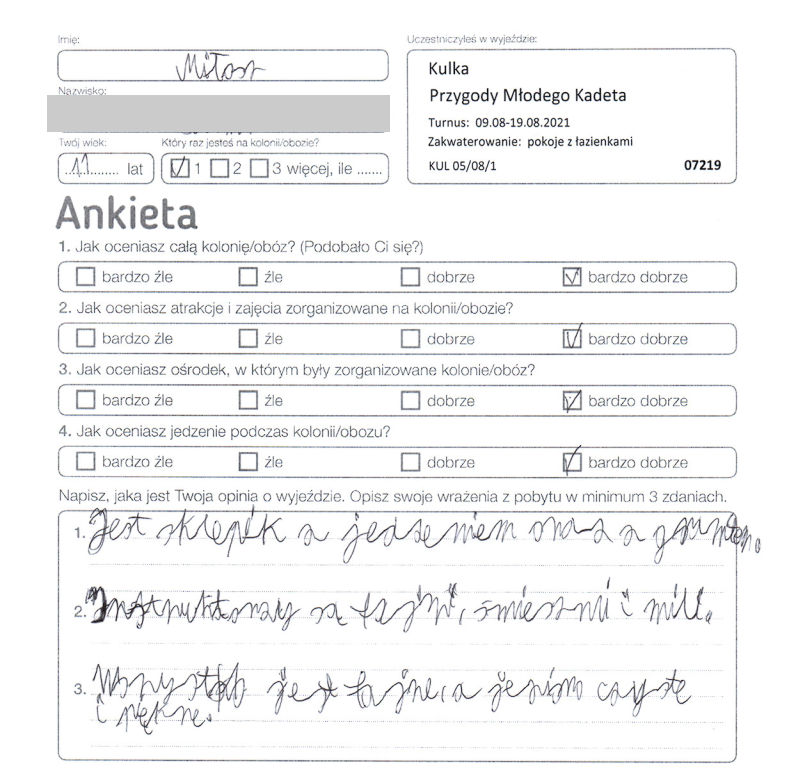 Imię:
Miłosz
Nazwisko:
Twój wiek:
11 lat
Który raz jesteś na kolonii/obozie?
1 2 3 więcej, ile .......
Uczestniczyłeś w wyjeździe:
Kulka
Przygody Młodego Kadeta
Turnus: 09.08-19.08.2021
Zakwaterowanie: pokoje z łazienkami
KUL 05/08/1 07219
Ankieta
1. Jak oceniasz całą kolonię/obóz? (Podobało Ci się?)
bardzo źle źle dobrze bardzo dobrze
2. Jak oceniasz atrakcje i zajęcia zorganizowane na kolonii/obozie?
bardzo źle źle dobrze bardzo dobrze
3. Jak oceniasz ośrodek, w którym były zorganizowane kolonie/obóz?
bardzo źle źle dobrze bardzo dobrze
4. Jak oceniasz jedzenie podczas kolonii/obozu?
bardzo źle źle dobrze bardzo dobrze
Napisz, jaka jest Twoja opinia o wyjeździe. Opisz swoje wrażenia z pobytu w minimum 3 zdaniach.
1. Jest sklepik z jedzeniem oraz z
2. Instruktorzy są fajni, śmieszni i mili.
3. jest fajne, a jezioro czyste
i piękne.